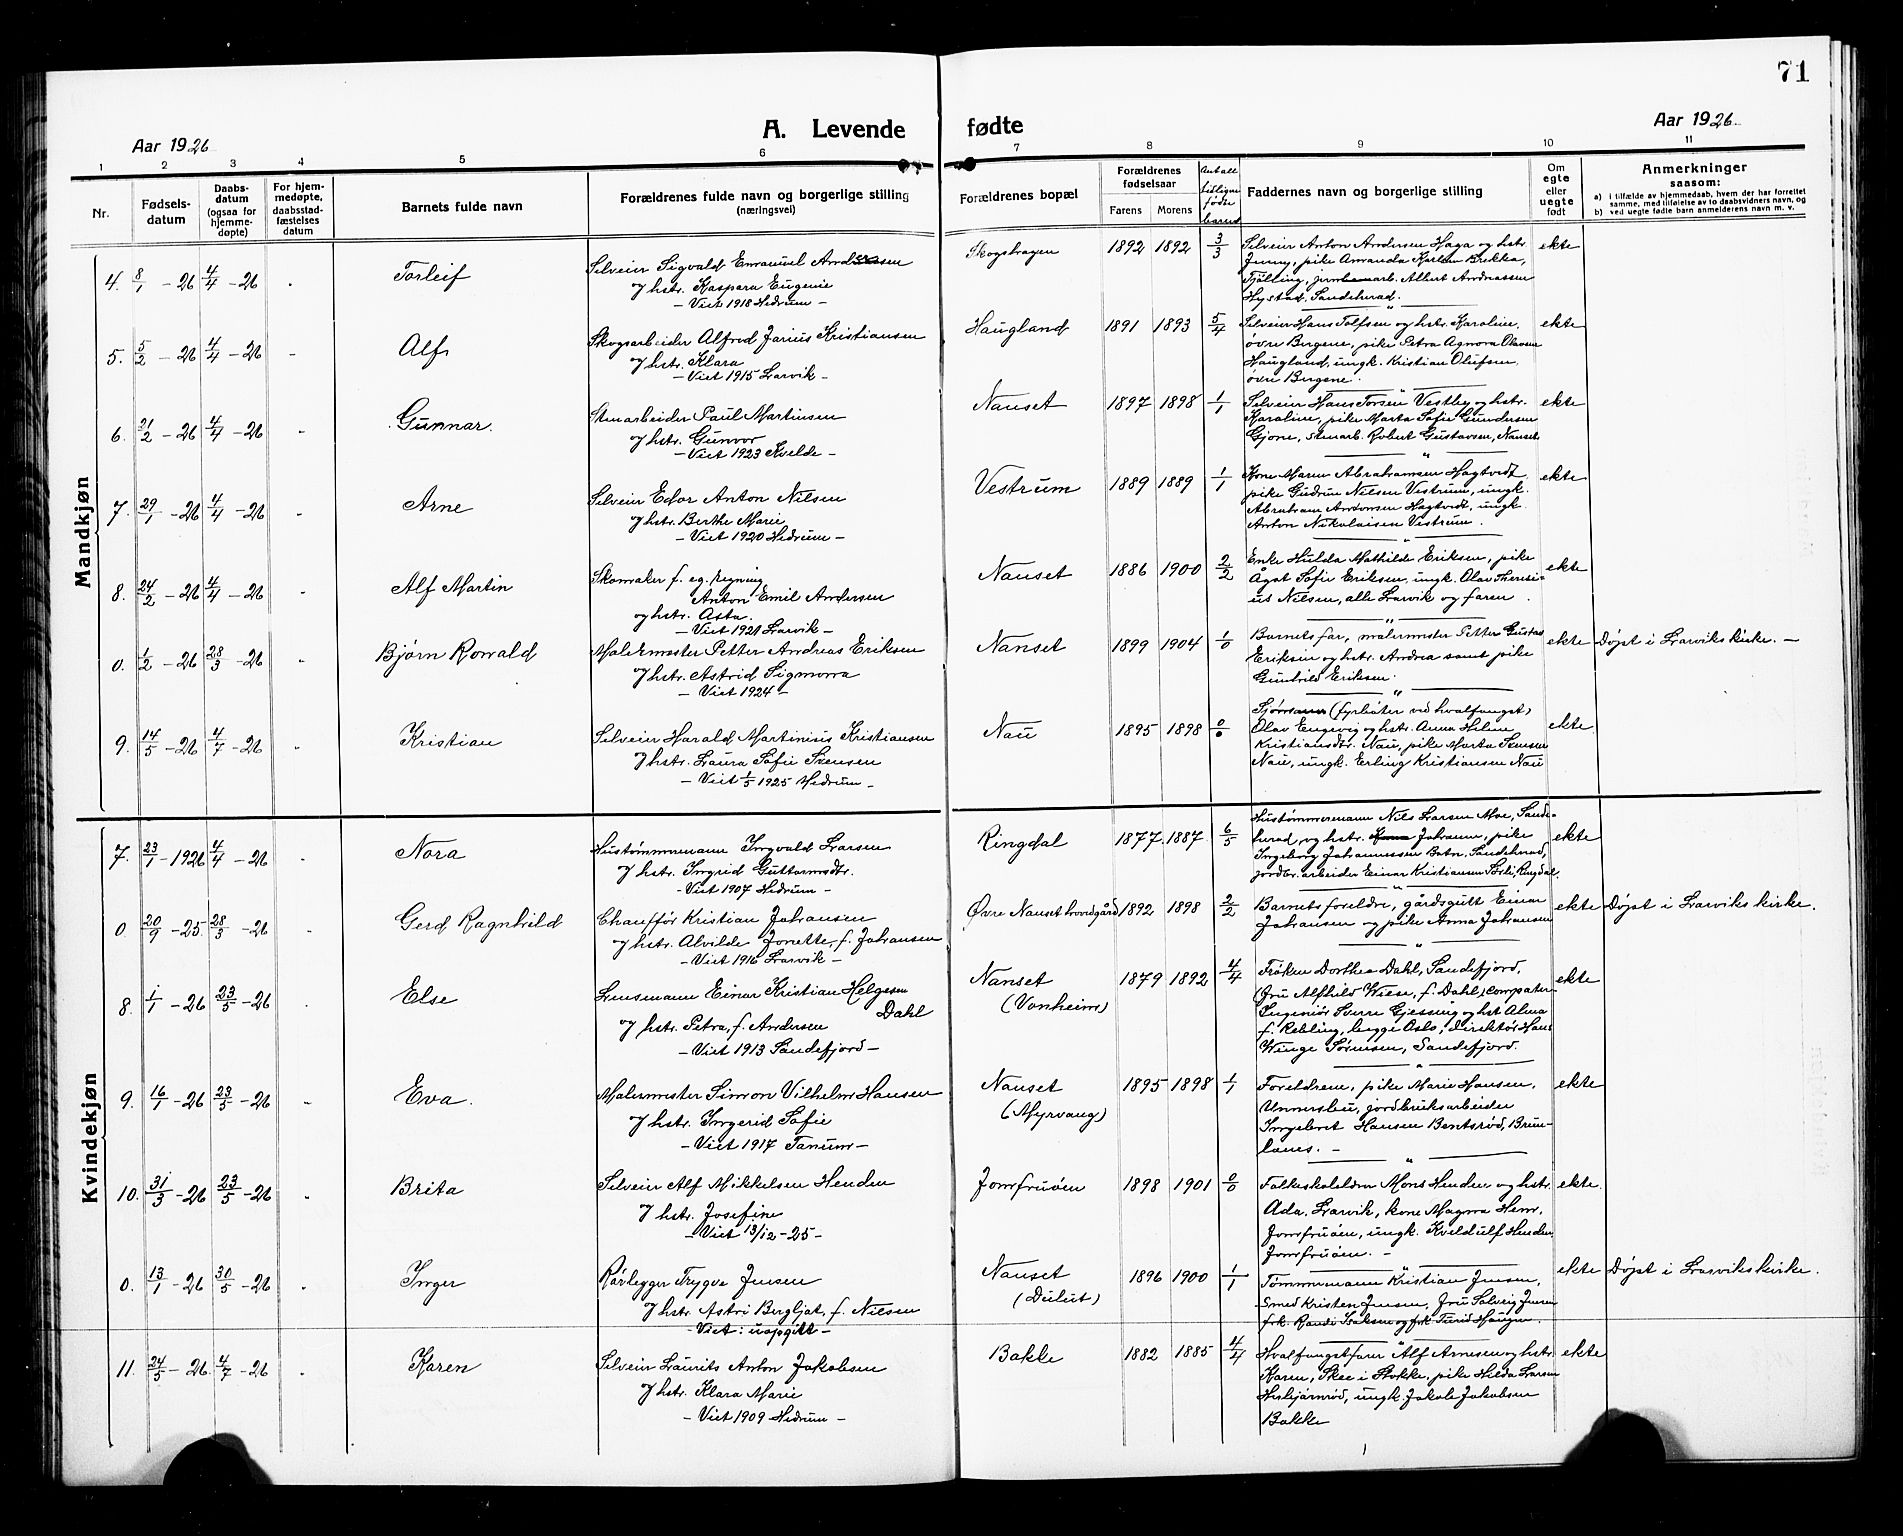 71
Aar 1926
A. Levende fødte
Aar 1926.
1 2 3 4 5 6 7 8 9 10 11
Nr.
Fødsels-
datum
Daabs-
datum
(ogsaa for
hjemme-
døpte)
For hjem-
medøpte,
daabsstad-
fæstelses
datum
Barnets fulde navn
Forældrenes fulde navn og borgerlige stilling
(næringsvei)
Forældrenes bopæl
Forældrenes
fødselsaar
Farens Morens
Antall
tidligere
fødte
barn
Faddernes navn og borgerlige stilling
Om
egte
eller
uegte
født
Anmerkninger
saasom:
a) i tilfælde av hjemmedaab, hvem der har forrettet
samme, med tilføielse av to daabsvidners navn, og
b) ved uegte fødte barn anmelderens navn m. v.
Mandkjøn
4. 8/1 - 26 4/4 - 26 Torleif
Selveier Sigvald Emanuel Andersen
og hstr. Kaspara Eugenie
- Viet 1918 Hedrum -
Skogshagen 1892 1892 3/3
Selveier Anton Andersen Haga og hstr.
Jenny, pike Amanda Karlsen Brekka,
Tjølling, jernbanearb. Albert Andreassen
Hystad, Sandeherad.
ekte
5. 5/2 - 26 4/4 - 26 Alf
Skogsarbeider Alfred Jarius Kristiansen
og hstr. Klara
- Viet 1915 Larvik -
Haugland 1891 1893 5/4
Selveier Hans Tolfsen og hstr. Karoline,
øvre Bergene, pike Petra Agnora Olavsen
Haugland, ungk. Kristian Olufsen,
øvre Bergene.
ekte
6. 21/2 - 26 4/4 - 26 Gunnar.
Stenarbeider Paul Martinsen
og hstr. Gunvor
- Viet 1923 Kvelde -
Nanset 1897 1898 1/1
Selveier Hans Torsen Vestby og hstr.
Karoline, pike Marta Sofie Gundersen
Gjone, stenarb. Robert Gustavsen, Nanset
ekte
7. 29/1 - 26 4/4 - 26 Arne
Selveier Edor Anton Nilsen
og hstr. Berthe Marie
- Viet 1920 Hedrum -
Vestrum 1889 1889 1/1
Kone Maren Abrahamsen Hagtvedt
pike Gudrun Nilsen Vestrum, ungk.
Abraham Andersen Hagtvedt, ungk.
Anton Nikolaisen Vestrum.
ekte
8. 24/2 - 26 4/4 - 26 Alf Martin
Skomaker f. eg. regning
Anton Emil Andersen
og hstr. Asta.
- Viet 1921 Larvik -
Nanset 1886 1900 2/2
Enke Hulda Mathilde Eriksen, pike
Ågot Sofie Eriksen, ungk. Olav Theresi-
us Nilsen, alle Larvik og faren.
ekte
0. 1/2 - 26 28/3 - 26 Bjørn Ronald
Malermester Petter Andreas Eriksen
og hstr. Astrid Sigmorra
- Viet 1924 -
Nanset 1899 1904 1/0
Barnets far, malermester Petter Gustav
Eriksen og hstr. Andrea samt pike
Gunhild Eriksen.
ekte Døpt i Larviks kirke. -
9. 14/5 - 26 4/7 - 26 Kristian
Selveier Harald Martinius Kristiansen
og hstr. Laura Sofie Svensen
- Viet 1/5 1925 Hedrum -
Nau 1895 1898 0/0
Sjømann (fyrbøter ved hvalfangst)
Olav Engevig og hstr. Anna Helene
Kristiansdtr. Nau, pike Marta Svensen
Nau, ungk. Erling Kristiansen Nau
ekte
Kvindekjøn
7. 23/1 - 1926 4/4 - 26 Nora
Hustømmermann Ingvald Larsen
og hstr. Ingrid Guttormsdtr.
- Viet 1907 Hedrum -
Ringdal 1877. 1887. 6/5
Hustømmermann Nils Larsen Moe, Sande-
herad, og hstr. Johanne, pike
Ingeborg Johannessen Bøtn, Sandeherad,
jordbr. arbeider Einar Kristiansen Sørli, Ringdal.
ekte
0 20/9 - 25. 28/3 - 26 Gerd Ragnhild
Chauffør Kristian Johansen
og hstr. Alvilde Jonette, f. Johansen
- Viet 1916 Larvik -
Øvre Nanset hovedgård 1892 1898 2/2
Barnets foreldre, gårdsgutt Einar
Johansen og pike Anna Johansen
ekte Døpt i Larviks kirke.
8. 1/1 - 26 23/5 - 26 Else
Lensmann Einar Kristian Helgesen
Dahl
og hstr. Petra, f. Andersen
- Viet 1913 Sandefjord -
Nanset
(Vonheim)
1879 1892 4/4
Frøken Dorthea Dahl, Sandefjord,
fru Alfhild Wiese, f. Dahl,
Ingeniør Sverre Gjessing og hst. Alma
f. Rebling, begge Oslo, direktør Hans
Winge Sørensen, Sandefjord.
ekte
9. 16/1 - 26 23/5 - 26 Eva.
Malermester Simon Vilhelm Hansen
og hstr. Ingerid Sofie
- Viet 1917 Tanum -
Nanset
(Myrvang)
1895 1898 1/1
Foreldrene, pike Marie Hansen,
Unnersbu, jordbruksarbeider
Ingebret Hansen Bentsrød, Brun-
lanes. -
ekte
10. 31/3 - 26 23/5 - 26 Brita
Selveier Alf Mikkelsen Henden
og hstr. Josefine
- Viet 13/12 - 25 -
Jomfruøen 1898 1901 0/0
Folkeskolelærer Mons Henden og hstr.
Ada, Larvik, kone Magna Hem,
Jomfruøen, ungk. Kveldulf Henden
Jomfruøen. -
ekte.
0. 13/1 - 26 30/5 - 26 Inger
Rørlegger Trygve Jensen
og hstr. Astri Bergljot, f. Nilsen
- Viet: uopgitt -
Nanset
(Dulut)
1896 1900 1/1
Tømmermann Kristian Jensen,
Smed Kristen Jensen, fru Solveig Jensen
frk. Randi Isaksen og frk Turid Haugen.
ekte Døpt i Larviks kirke.
11. 24/5 - 26. 4/7 - 26 Karen
Selveier Laurits Anton Jakobsen
og hstr. Klara Marie
- Viet 1909 Hedrum -
Bakke 1882 1885 4/4
Hvalfangstfører Alf Arnesen og hstr.
Karen, Skee i Stokke, pike Hilda Larsen
Hesbjørnrød, ungk. Jakob Jakobsen
Bakke
ekte